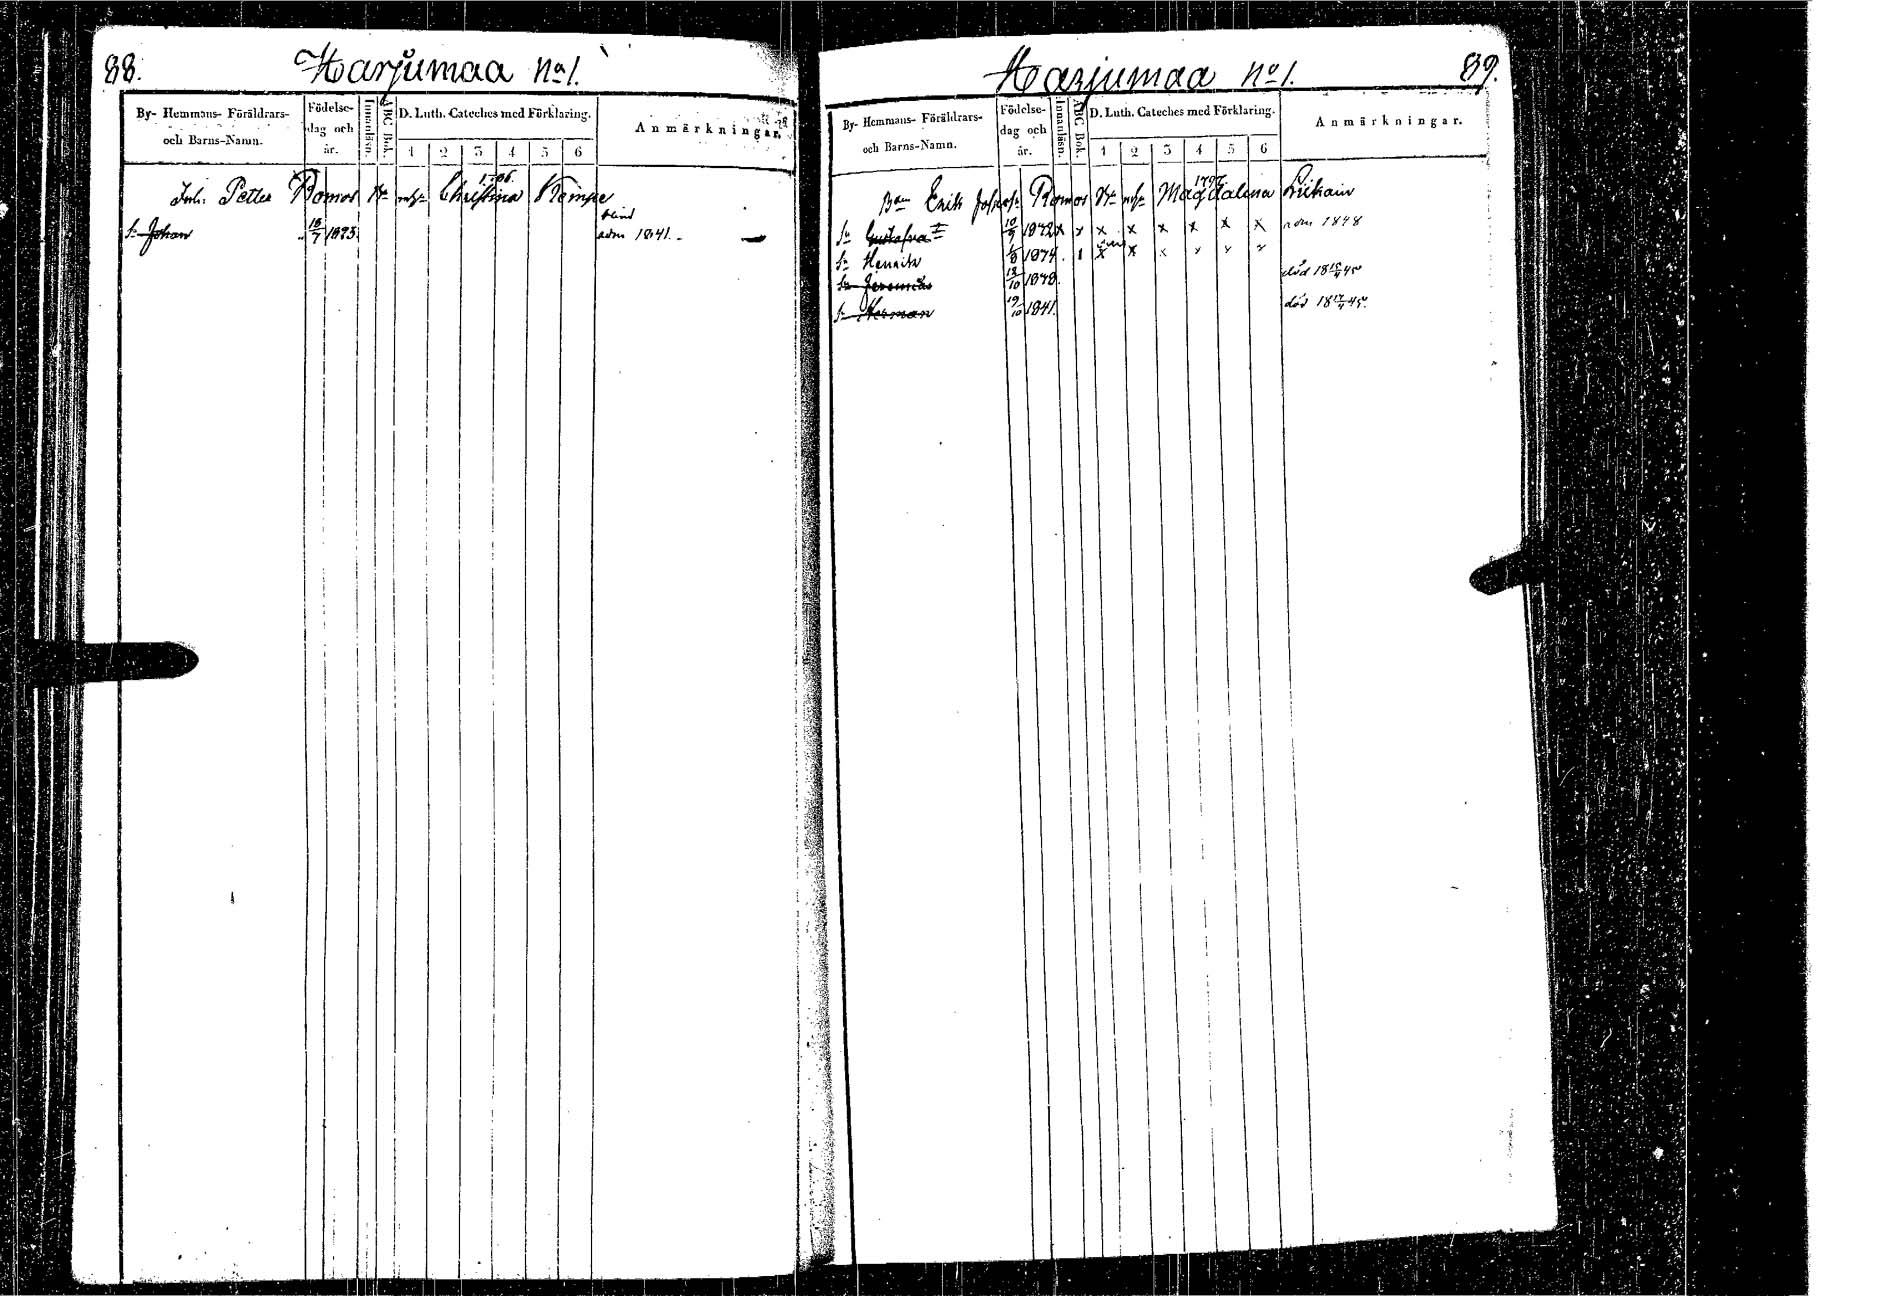 88.
Harjumaa No 1.
By- Hemmans- Föräldrars- och Barns-Namn.
Födelse- dag och år.
Innanläsn.
ABC Bok.
D. Luth. Cateches med Förklaring.
1 2 3 4 5 6
Anmärkningar.
1786
Petter Romos Christina Kempe
blind
Sn Johan 18/7 1823 adm 1841.
89.
Harjumaa No 1.
By- Hemmans- Föräldrars- och Barns-Namn.
Födelse- dag och år.
Innanläsn.
ABC Bok.
D. Luth. Cateches med Förklaring.
1 2 3 4 5 6
Anmärkningar.
1797
Erik Romos Magdalena Liikain
Sn Gustafva 1832 x x x x x x x x adm 1848
Sn Henrik 1834. 1 x x x x x x
Sn Jeremias 18/10 1838. död 18 15/4 45
Sn Herman 19/10 1841. död 18 17/4 45.